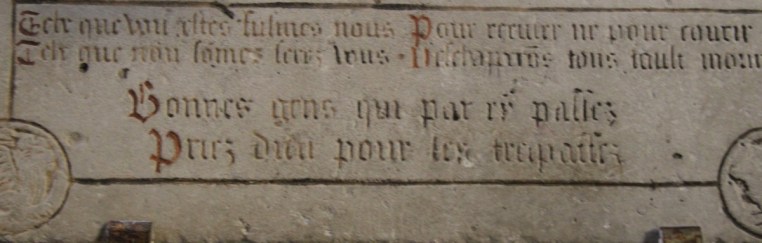 Telz que vous estes fusmes nous Pour reculer ne pour courir
Telz que nous sõmes serez vous Neschapperõs tous fault mou
Bonnes gens qui par cy passez
Priez dieu pour les trespassez